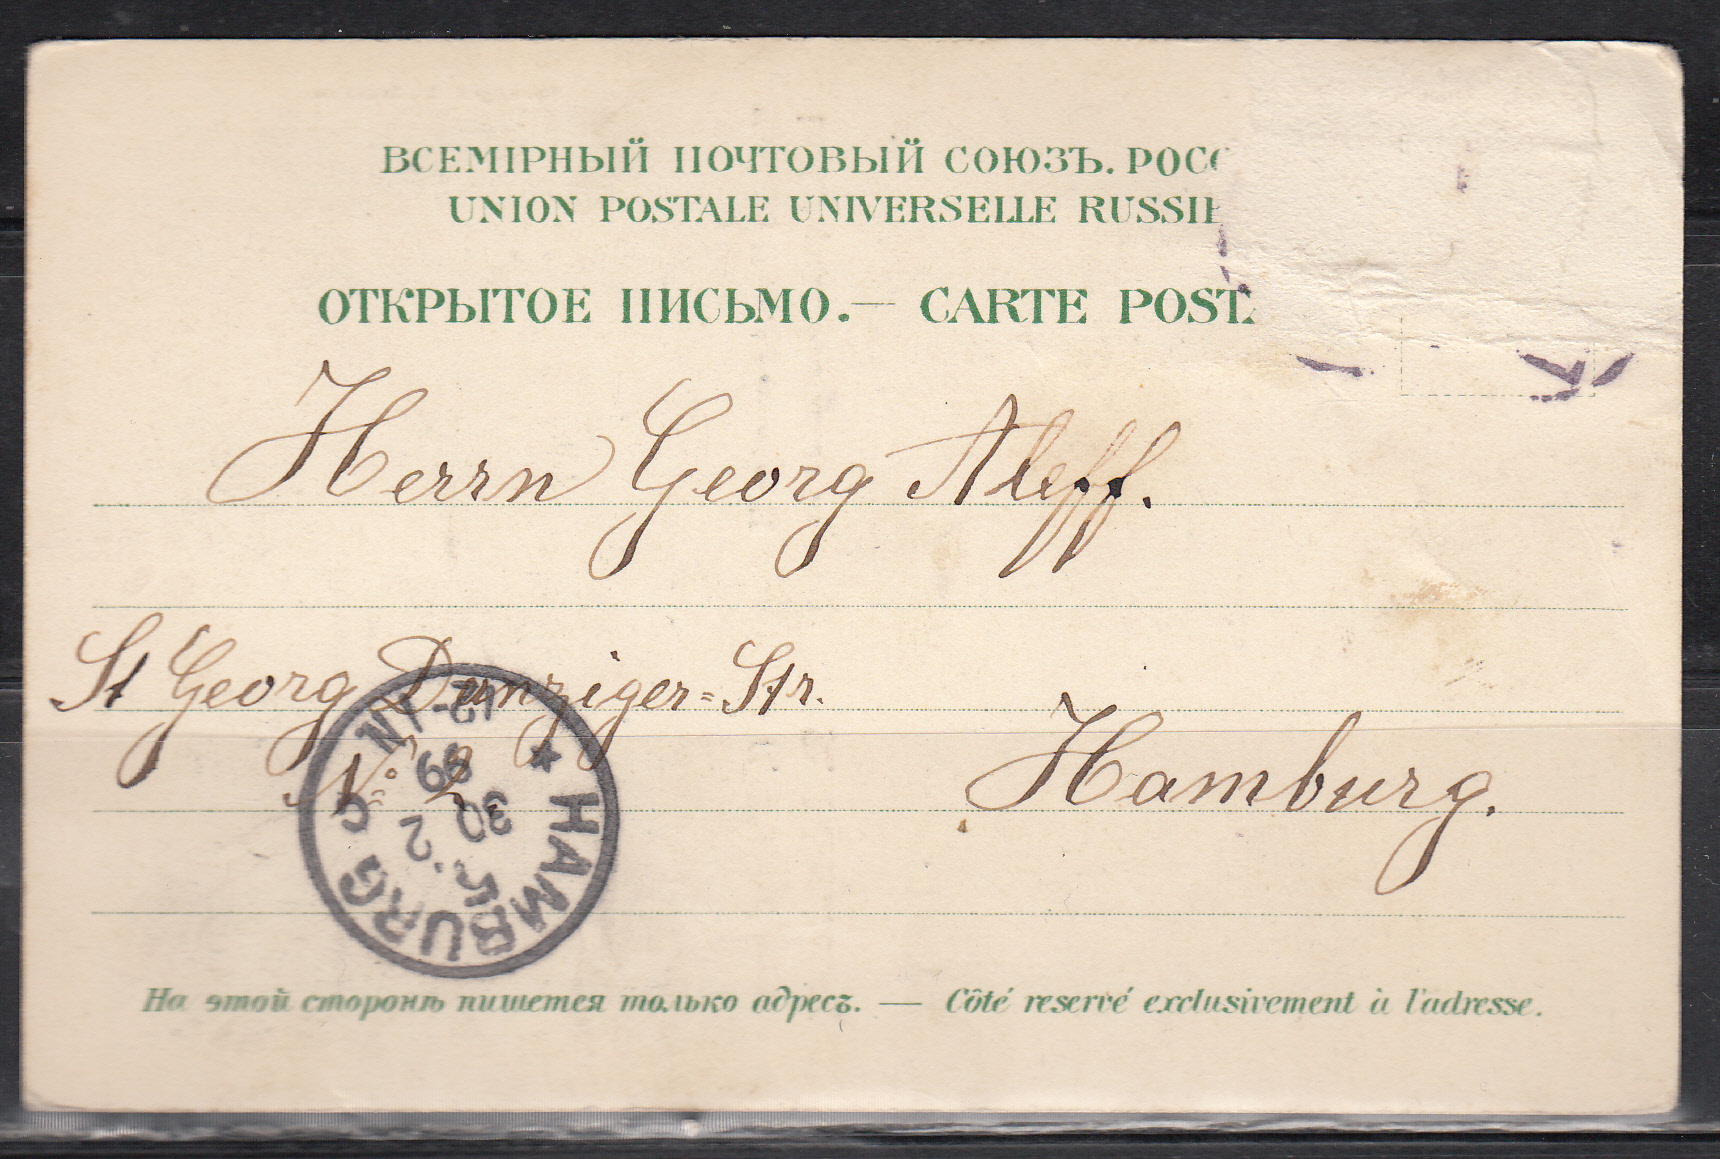 ВСЕМІРНЫЙ ПОЧТОВЫЙ СОЮЗЪ. РОСС
UNION POSTALE UNIVERSELLE RUSSIE
ОТКРЫТОЕ ПИСЬМО.— CARTE POSTA
Herrn Georg Aleff.
St Georg Danziger=Str.
No. 2
Hamburg.
★ HAMBURG C
5
30 2.
99
12-1N
На этой сторонѣ пишется только адресъ. — Côté reservé exclusivement à l'adresse.